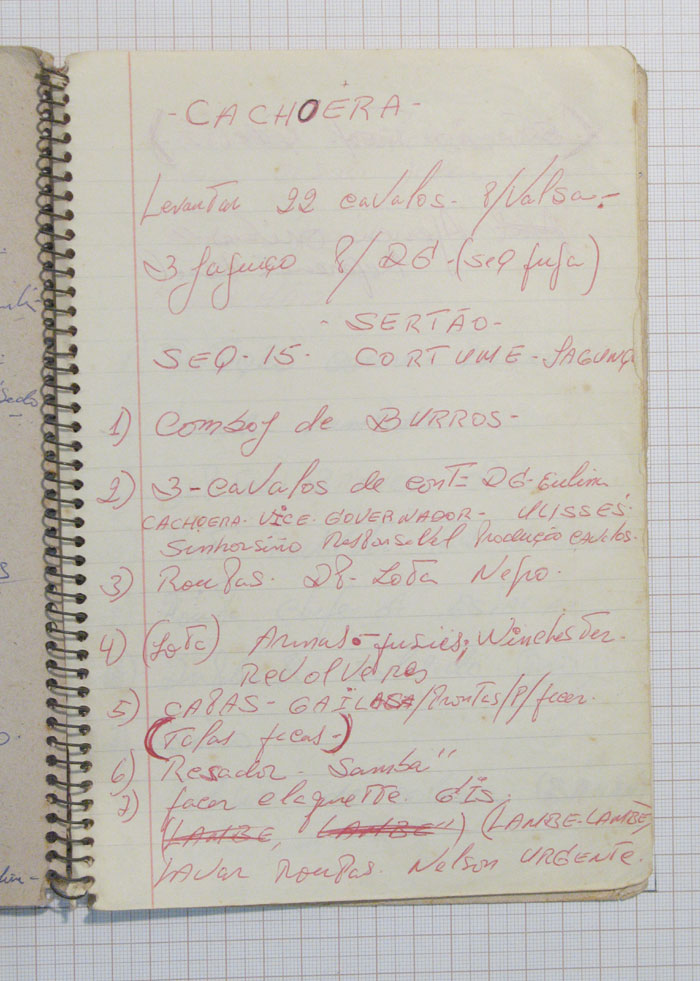 - CACHOERA -
Levantar 22 cavalos - P/Valsa -
3 Jagunço P/ DG - (SEQ fuga)
- SERTÃO -
SEQ - 15 - CORTUME - JAGUNÇ
1) Comboy de BURROS -
2) 3 - cavalos de cont = DG -
CACHOERA - VICE - GOVERNADOR - ULISSES -
Senhorsinho Responsavel Produção cavalos.
3) Roupas. Lota Nepo.
4) (Lota) Armas - fusies, Winchester.
Revolveres
5) CAPAS - Prontas/P/ficar.
(Talas ficas -)
6) Resador - Samba"
7) facer elaquette. GIS.
LAMBE, LAMBE") (LAMBE-LAMBE,
LAVAR ROUPAS. Nelson URGENTE.